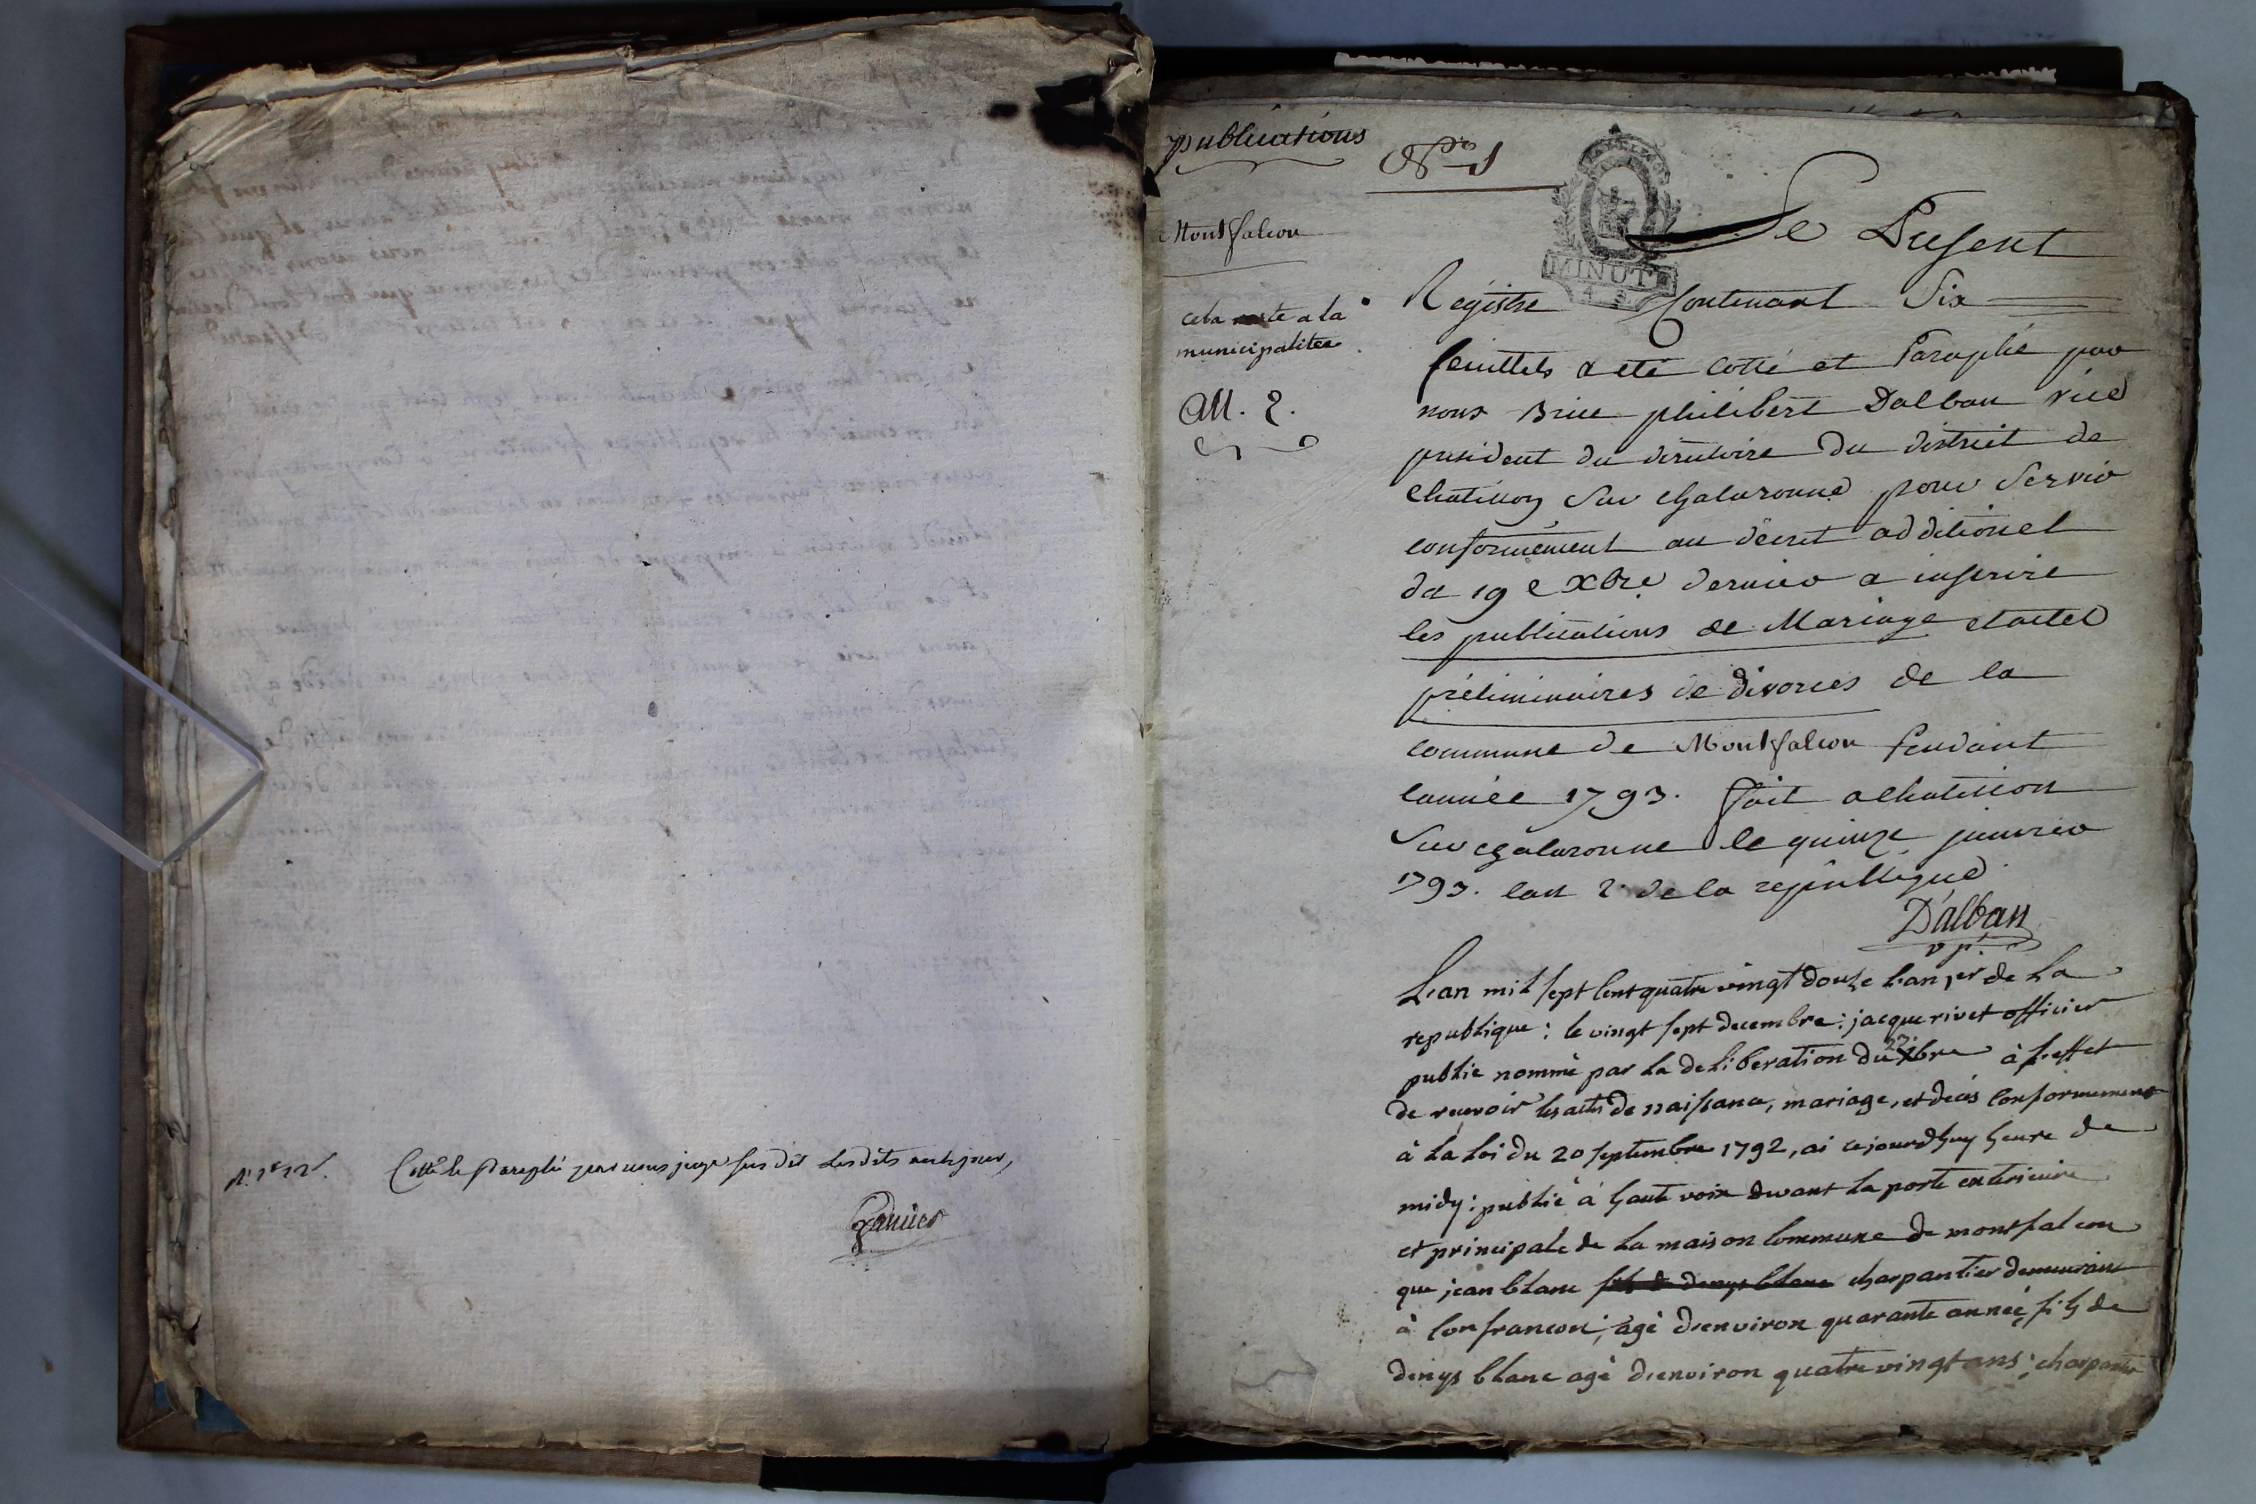 Cotté et Paraphé par nous juge sus dit les dits an et jour,
Garnier
publications
N° 1
Montfalcon
cela reste a la
municipalitee
MINUTE
Le Present
Registre Contenant Six
feuillets a eté Cotté et Paraphé par
nous Brice philibert Dalban vice
president du directoire Du district de
Chatillon Sur chalaronne pour Servir
conformement au décret additionel
du 19 Xbre dernier a inscrire
les publications de Mariage et actes
préliminaires de divorces de la
commune de Montfalcon Pendant
lannée 1793. fait a Chatillon
Sur chalaronne le quinze janvier
1793. lan 2. de la république
D'alban
v pt
L'an mil sept Cent quatre vingt douze l'an 1er de La
republique : le vingt sept decembre : jacque rivet officier
public nommé par La deliberation du Xbre à l'effet
de recevoir les actes de naissance, mariage, et decés Conformement
à La Loi du 20 septembre 1792, ai cejourdhuy heure de
midy : publié à haute voix devant La porte exterieure
et principale de La maison Commune de montfalcon
que jean blanc fils de denys blanc charpantier demeurant
à Confrancon, agé d'environ quarante année, fils de
denys blanc agé d'environ quatre vingt ans ; charpantier